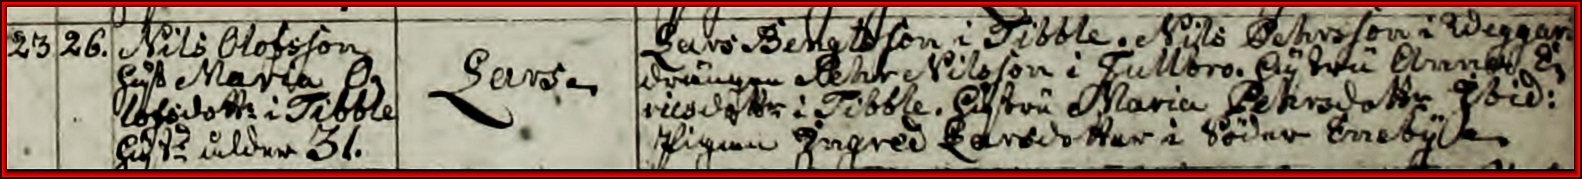 23 26. Nils Olofsson
Hust Maria O
lofsdottr i Tibble
Hustr ulder 31.
Lars
Lars Bengtsson i Tibble. Nils Pehrsson i Weggar
drängen Pehr Nilsson i Fullbro. Hustru Anna E
ricsdottr i Tibble. Hustru Maria Pehrsdottr Ibid:
Pigan Ingred Larsdotter i Söder Enneby